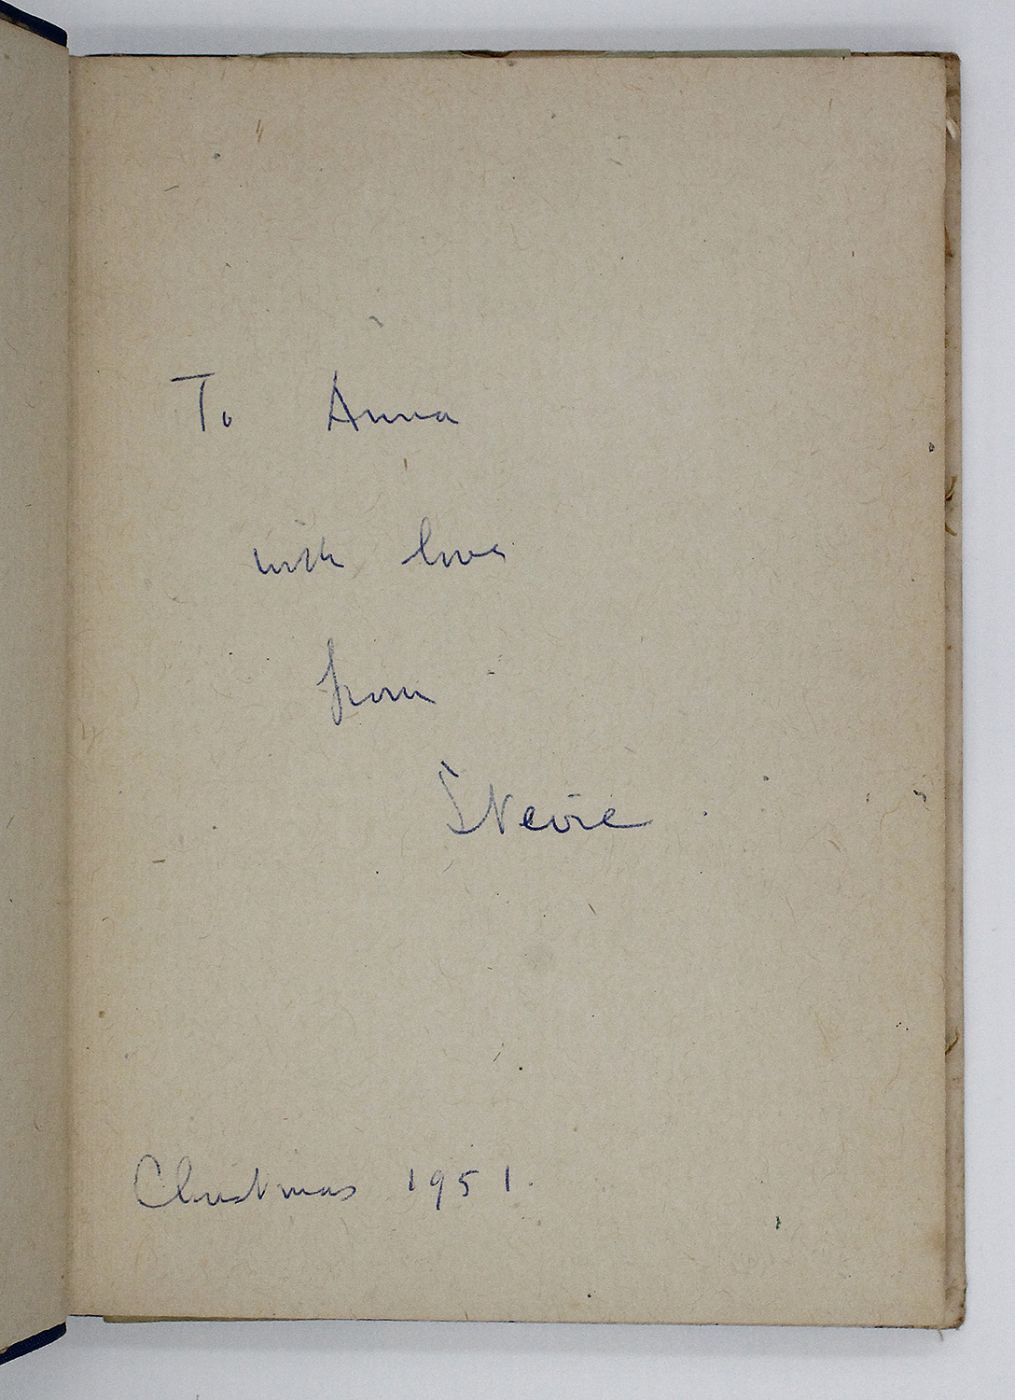 To Anna
with love
from
Stevie
Christmas 1951.